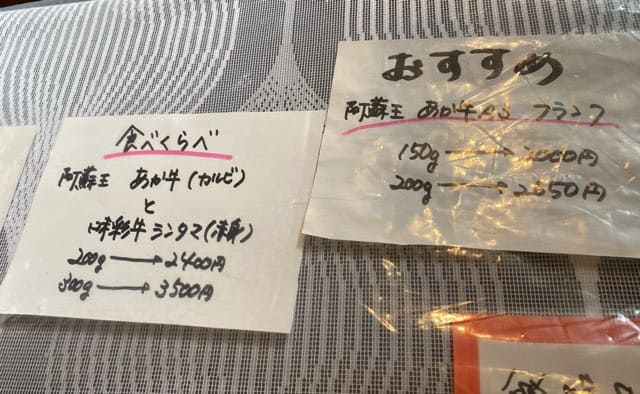 食べくらべ
阿蘇王 あか牛(カルビ)
と
味彩牛シンタマ(赤身)
200g→2400円
300g→3500円
おすすめ
阿蘇王 あか牛 フランク
150g→2000円
200g→2650円